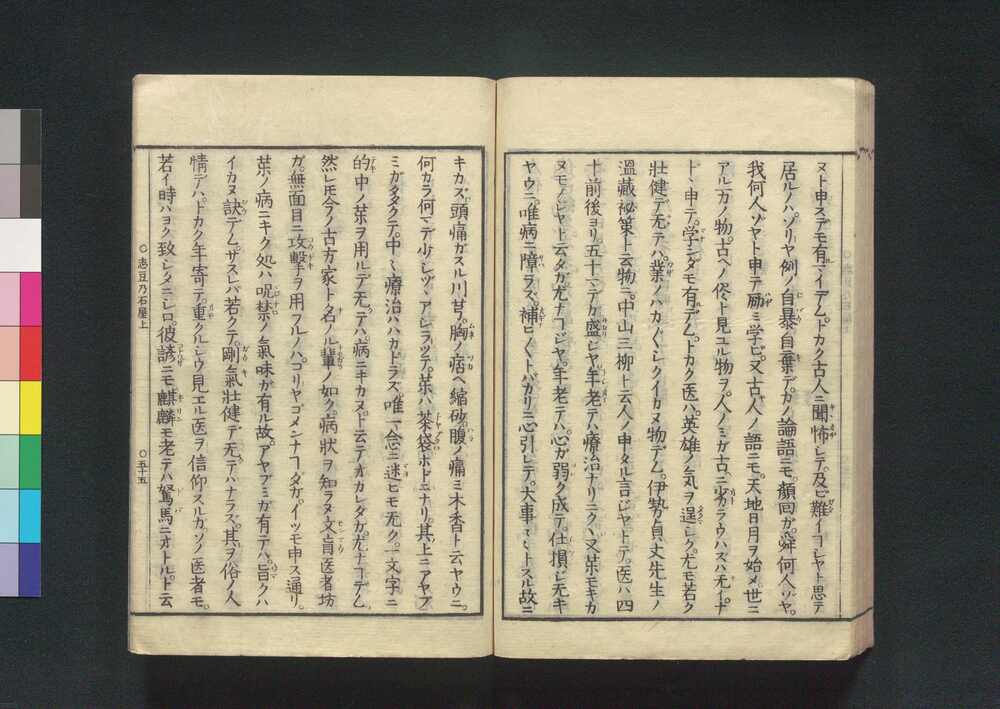 ヌト申スデモ有マイデム。トカク古人ニ聞怖レテ。及ビ難イコレヤト思テ
居ルノハ。ソリヤ例ノ自暴自棄デ。カノ論語ニモ。顔回ガ。舜何人ゾヤ。
我何人ゾヤト申テ励ミ学ビ。又古人ノ語ニモ。天地日月ヲ始メ。世ニ
アル一カノ物。古ヘノ侭ト見ユル物ヲ。人ノミガ古ニ劣ラウハズハ无イナ
ドヽ申テ。学ンダモ有デム。トカク医ハ。英雄ノ気ヲ逞シク。尤モ若ク
壮健デ无テハ。業ノハカ〲シクイカヌ物デム。伊勢貞丈先生ノ
温藏祕策ト云物ニ。中山三柳ト云人ノ申タル言ジヤトテ。医ハ四
十前後ヨリ。五十マデガ盛ジヤ。年老テハ療治ナリニクヽ。又薬モキカ
ヌモノジヤト云タガ尤ナコジヤ。年老テハ。心ガ弱ク成テ。仕損ジ无キ
ヤウニ。唯病ニ障ラズ。補ヒ〱トバカリニ心引レテ。大事〻〻トスル故ニ
キカズ。頭痛ガスル川芎。胸ノ痞ヘ縮砂。腹ノ痛ミ木香ト云ヤウニ。
何カラ何マデ少シヅヽアシラツテ。薬ハ茶袋ホドニナリ。其上ニアヤブ
ミガタクテ。中〻療治ハハカドラズ。唯一念ニ迷ヒモ无ク。一文字ニ
的中ノ薬ヲ用ルデ无テハ。病ニキカヌ。ト云テオカレタガ。尤ナコデム。
然レ𪜈今ノ古方家ト名ノル輩ノ如ク。病状ヲ知ラヌ文盲医者坊
ガ。無面目ニ攻撃ヲ用フルノハ。コリヤゴメンナコダガ。イツモ申ス通リ。
薬ノ病ニキク処ハ呪禁ノ氣味ガ有ル故。アヤブミガ有テハ。旨クハ
イカヌ訣デム。サスレバ若クテ。剛氣壮健デ无テハナラズ。其ヲ俗ノ人
情デハ。トカク年寄テ。重クルシウ見エル医ヲ信仰スルガ。ソノ医者モ。
若イ時ハヨク致シタニシロ。彼諺ニモ。麒麟モ老テハ駑馬ニオトル。ト云
○志豆乃石屋上
○五十五